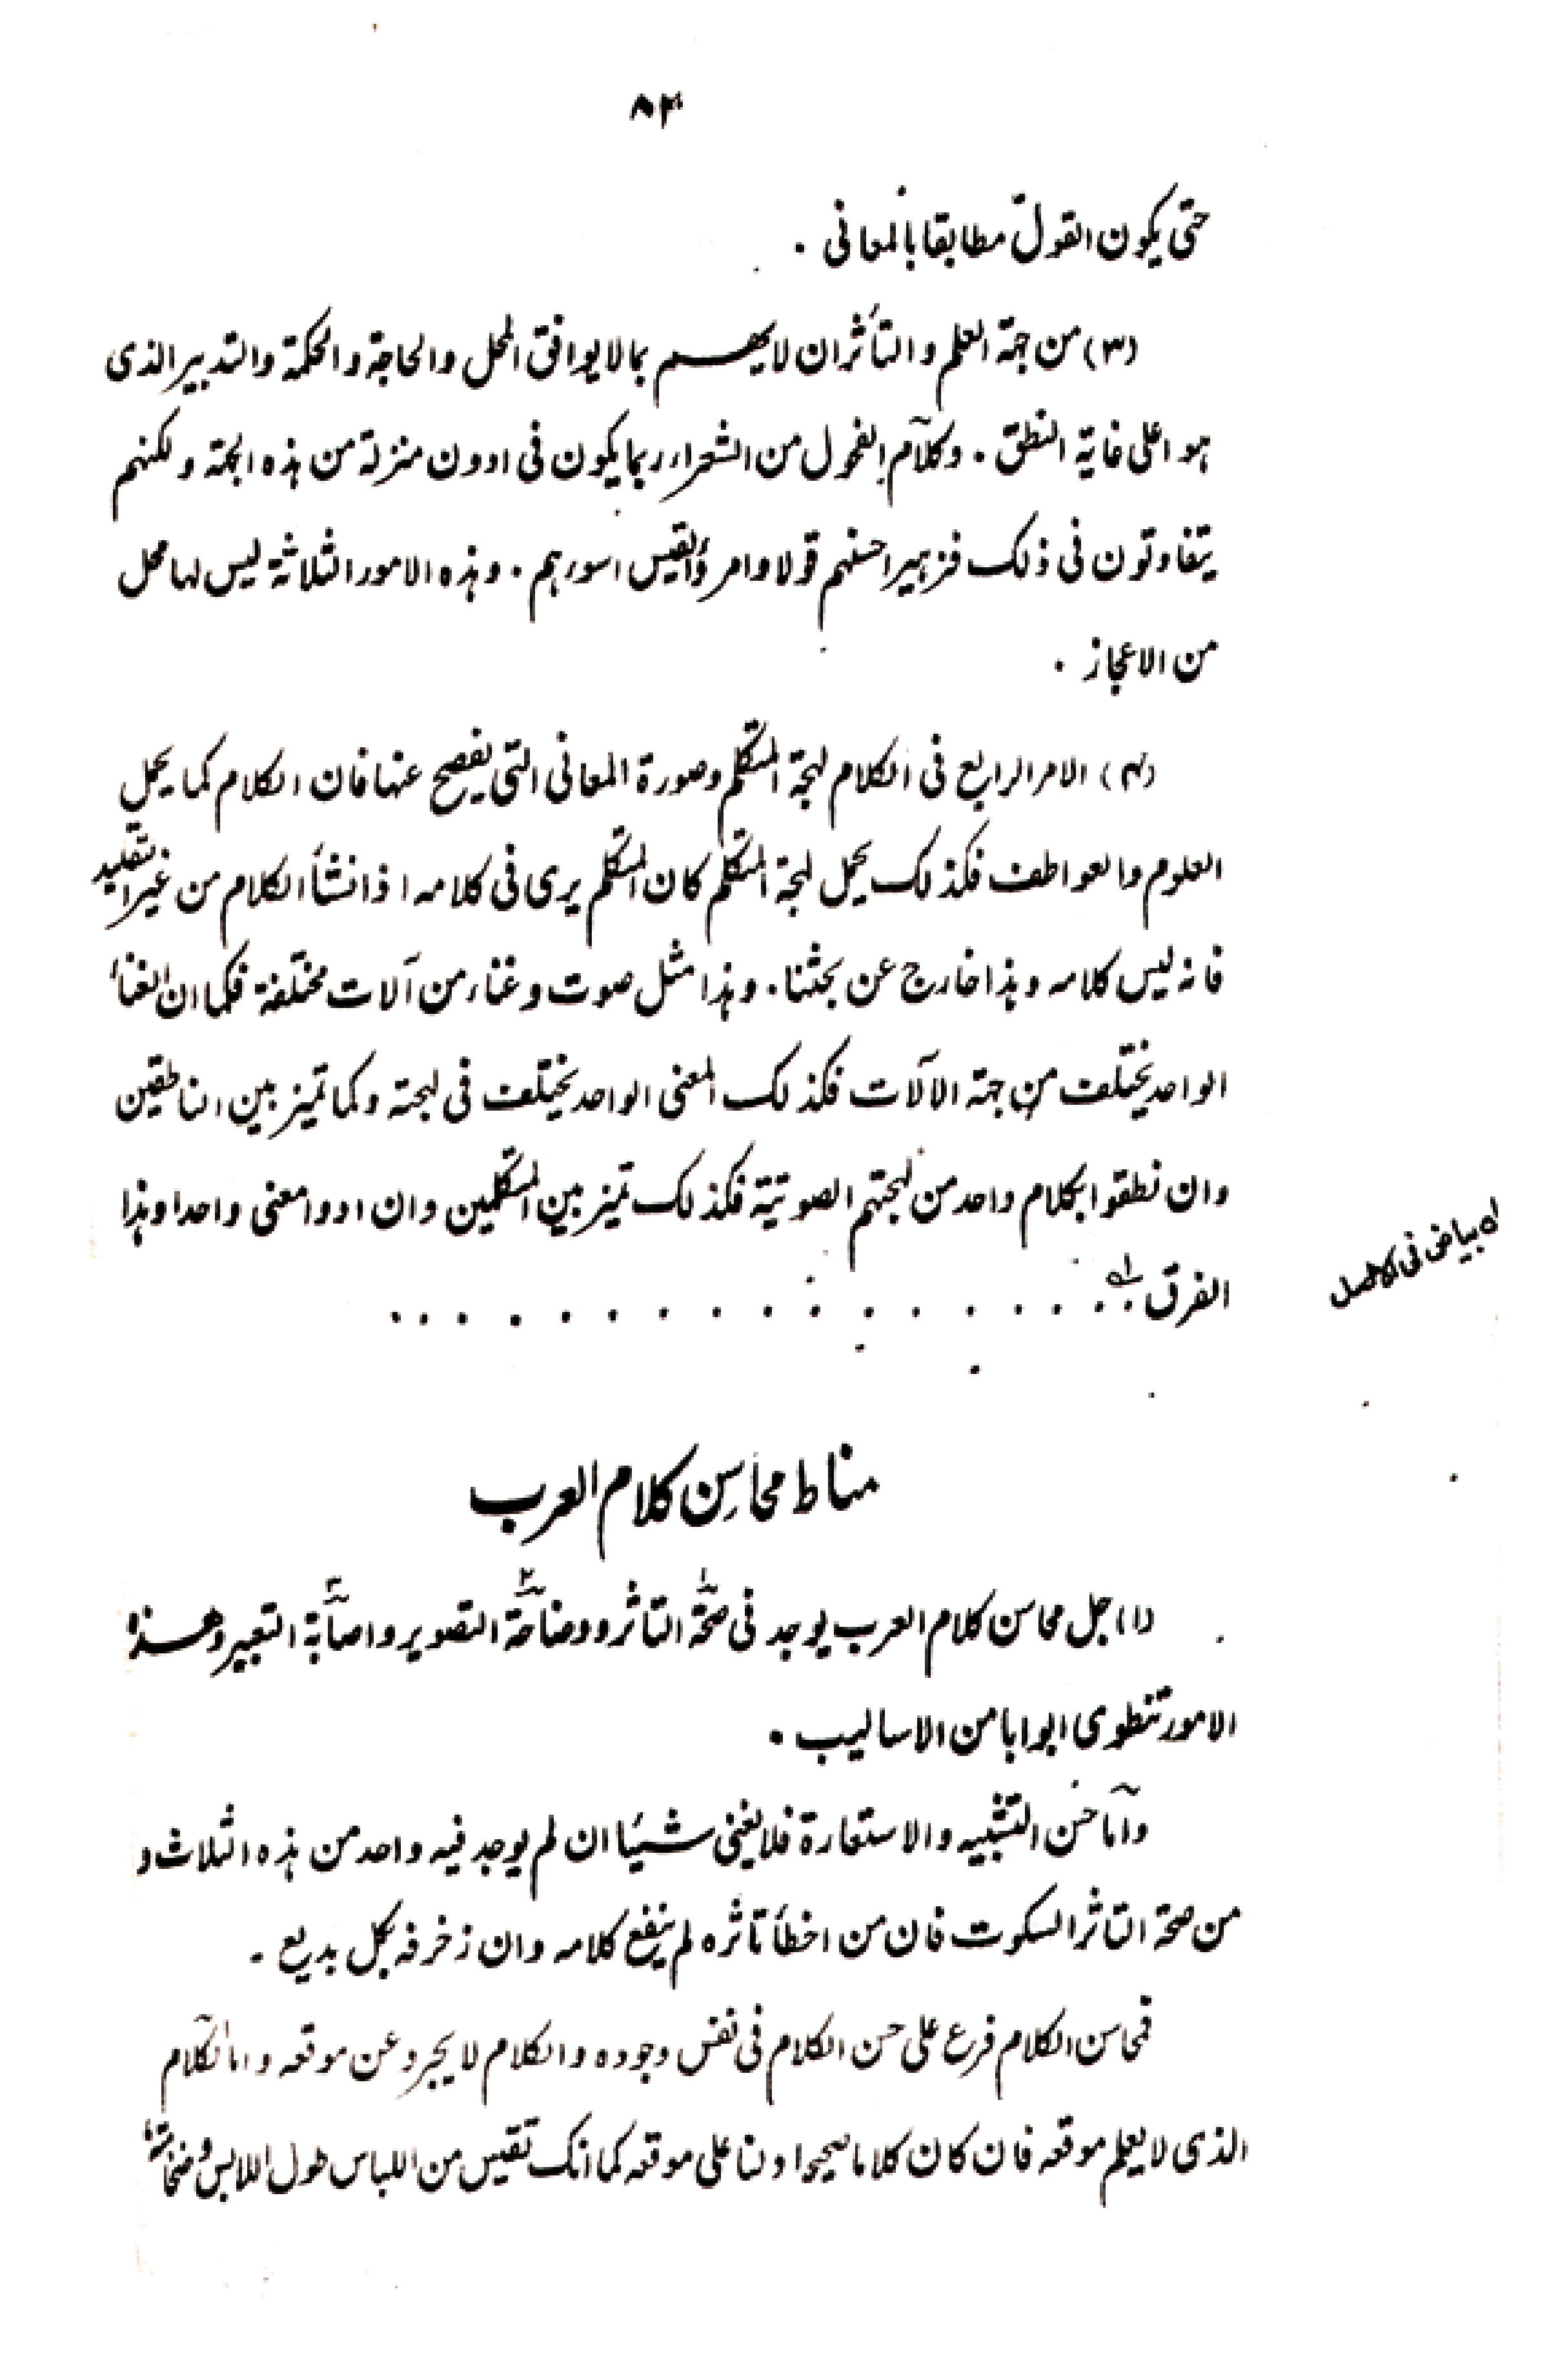 ۸۴
حتی یکون القول مطابقا بالمعانی ۔
(۳) من جهة العلم والتأثران لایهم بمالا یوافق المحل والحاجة والحکمة والتدبیر الذی
هو اعلی غایة النطق ۔ وکلام الفحول من الشعراء ربما یکون فی ادون منزلة من هذه الجهة ولکنهم
یتفاوتون فی ذلک فزهیر احسنهم قولا وامرؤالقیس اسورهم ۔ وهذه الامور الثلاثة لیس لها محل
من الاعجاز ۔
(۴) الامر الرابع فی الکلام لهجة المتکلم وصورة المعانی التی یفصح عنها فان الکلام کما یحمل
العلوم والعواطف فکذلک یحمل لهجة المتکلم کان المتکلم یری فی کلامه اذا نشأ الکلام من غیر التقلید
فانه لیس کلامه وهذا خارج عن بحثنا ۔ وهذا مثل صوت وغناء من آلات مختلفة فکما ان الغناء
الواحد یختلف من جهة الآلات فکذلک المعنی الواحد یختلف فی لهجة وکما تمیز بین الناطقین
وان نطقوا بکلام واحد من لهجتهم الصوتیة فکذلک تمیز بین المتکلمین وان ادوا معنی واحدا وهذا
الفرق ۱ه . . . . . . . . . . . . . . . . .
۱ه بیاض فی الاصل
مناط محاسن کلام العرب
(۱) جل محاسن کلام العرب یوجد فی صحة۱ التاثر ووضاحة۲ التصویر واصابة۳ التعبیر وهذه
الامور تنطوی ابوابا من الاسالیب ۔
واما حسن التشبیه والاستعارة فلا یغنی شیئا ان لم یوجد فیه واحد من هذه الثلاث و
من صحة التاثر السکوت فان من اخطأ تاثره لم ینفع کلامه وان زخرفه بکل بدیع ۔
فمحاسن الکلام فرع علی حسن الکلام فی نفس وجوده والکلام لا یجرد عن موقعه واما الکلام
الذی لا یعلم موقعه فان کان کلاما صحیحا دلنا علی موقعه کما انک تقیس من اللباس طول اللابس وضخامته